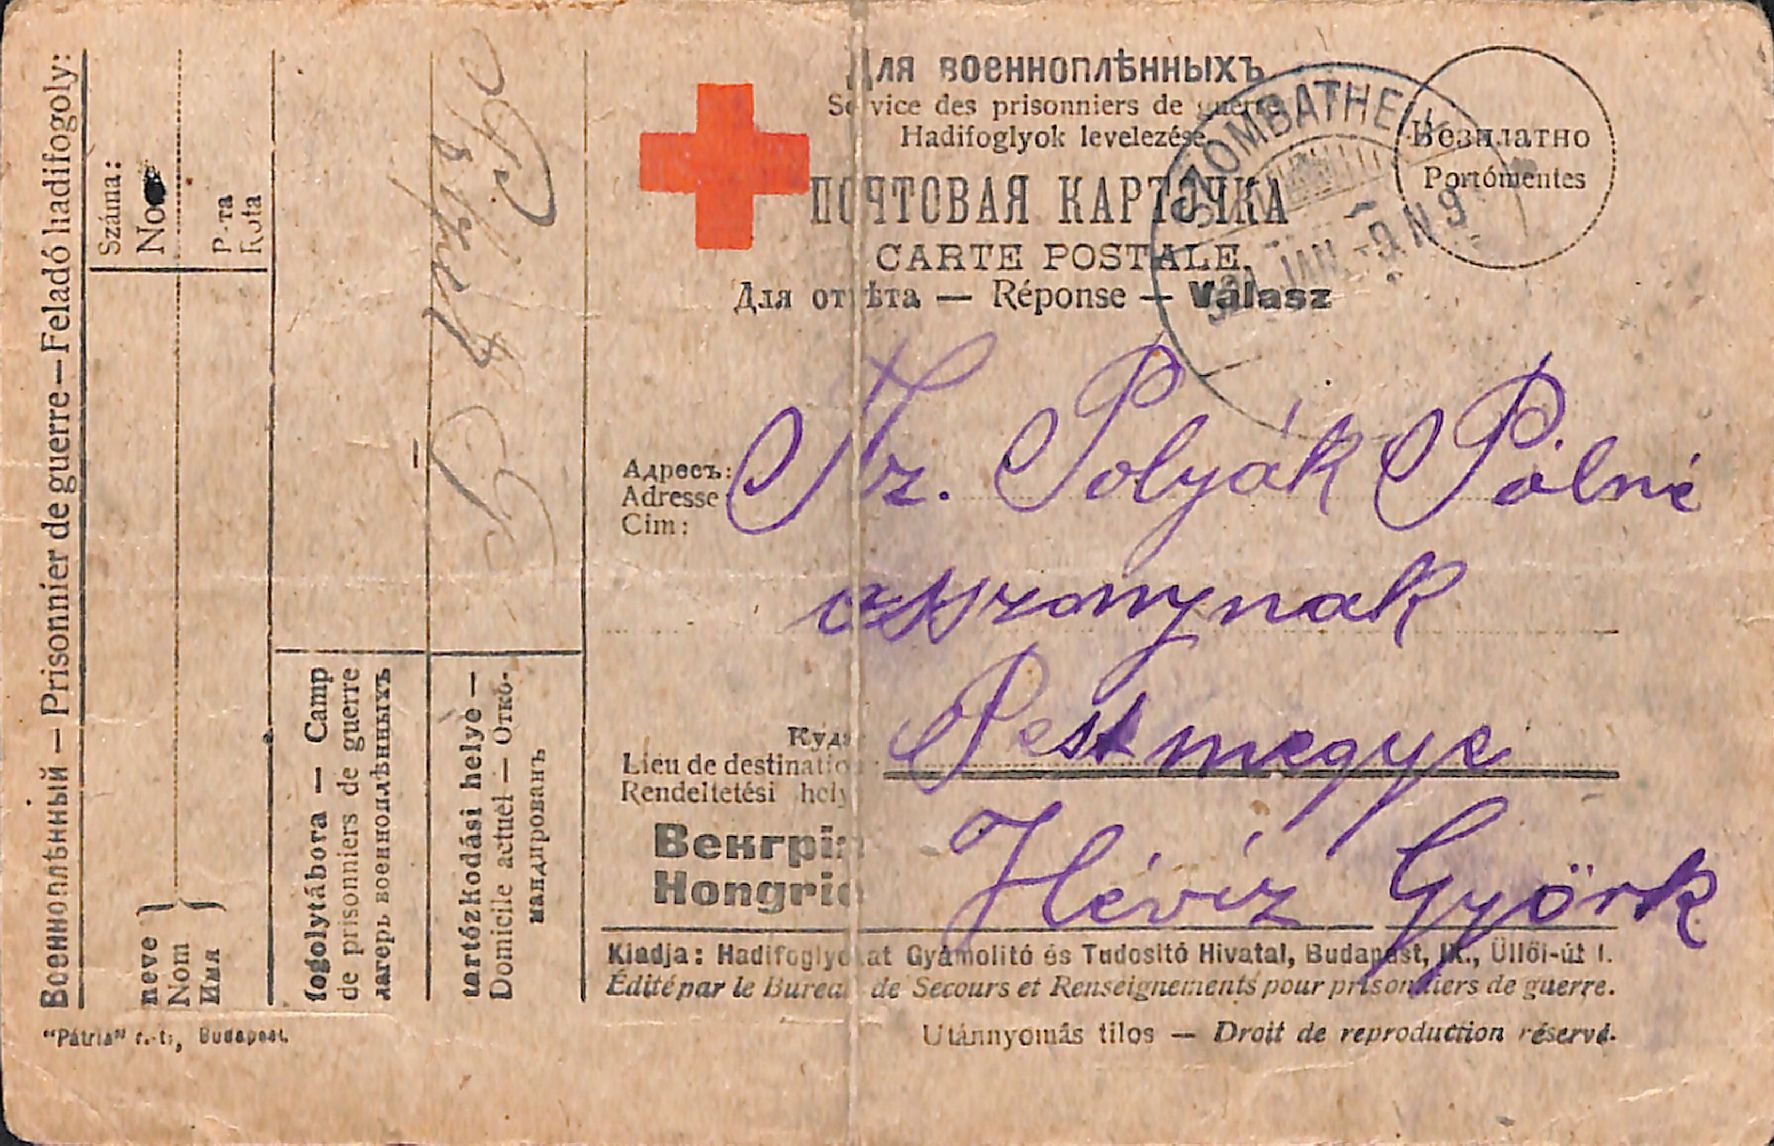 Военноплѣнный — Prisonnier de guerre — Feladó hadifogoly:
Száma:
No
Р-та
Rota
neve
Nom
Имя
fogolytábora — Camp
de prisonniers de guerre
лагерь военноплѣнныхъ
tartózkodási helye —
Domicile actuel — Отко-
мандированъ
Для военноплѣнныхъ
Service des prisonniers de guerre
Hadifoglyok levelezése
ПОЧТОВАЯ КАРТОЧКА
CARTE POSTALE.
Для отвѣта — Réponse — Válasz
Безплатно
Portómentes
SZOMBATHELY
JAN. -9. N 9
Адресъ:
Adresse:
Cim:
Nz. Polyák Pálné
asszonynak
Куда:
Lieu de destination:
Rendeltetési hely
Pestmegye
Венгрія
Hongrie
Hévíz Györk
Kiadja: Hadifoglyokat Gyámolitó és Tudositó Hivatal, Budapest, IX., Üllői-út 1.
Édité par le Bureau de Secours et Renseignements pour prisonniers de guerre.
"Pátria" r.-t., Budapest.
Utánnyomás tilos — Droit de reproduction réservé.